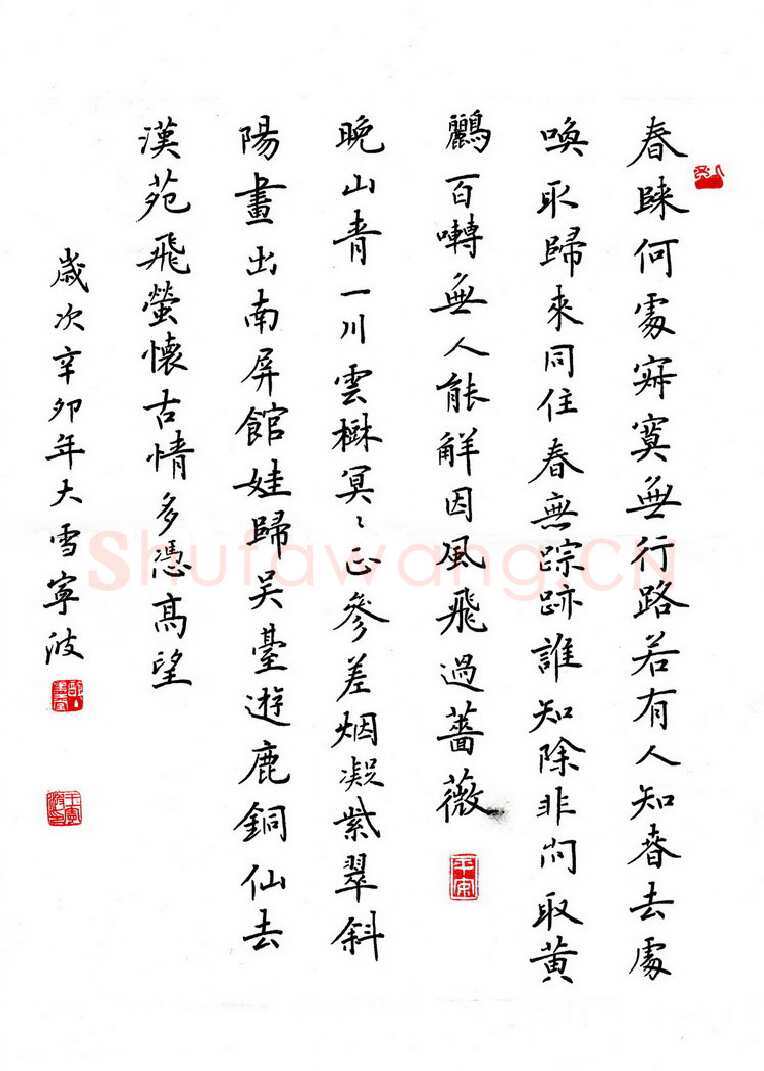 春歸何處寂寞無行路若有人知春去處
喚取歸來同住春無踪跡誰知除非問取黃
鸝百囀無人能解因風飛過薔薇
晚山青一川雲樹冥〻正參差烟凝紫翠斜
陽畫出南屏館娃歸吳臺遊鹿銅仙去
漢苑飛螢懷古情多憑高望
歲次辛卯年大雪寧波
平安
Shufawang.CN